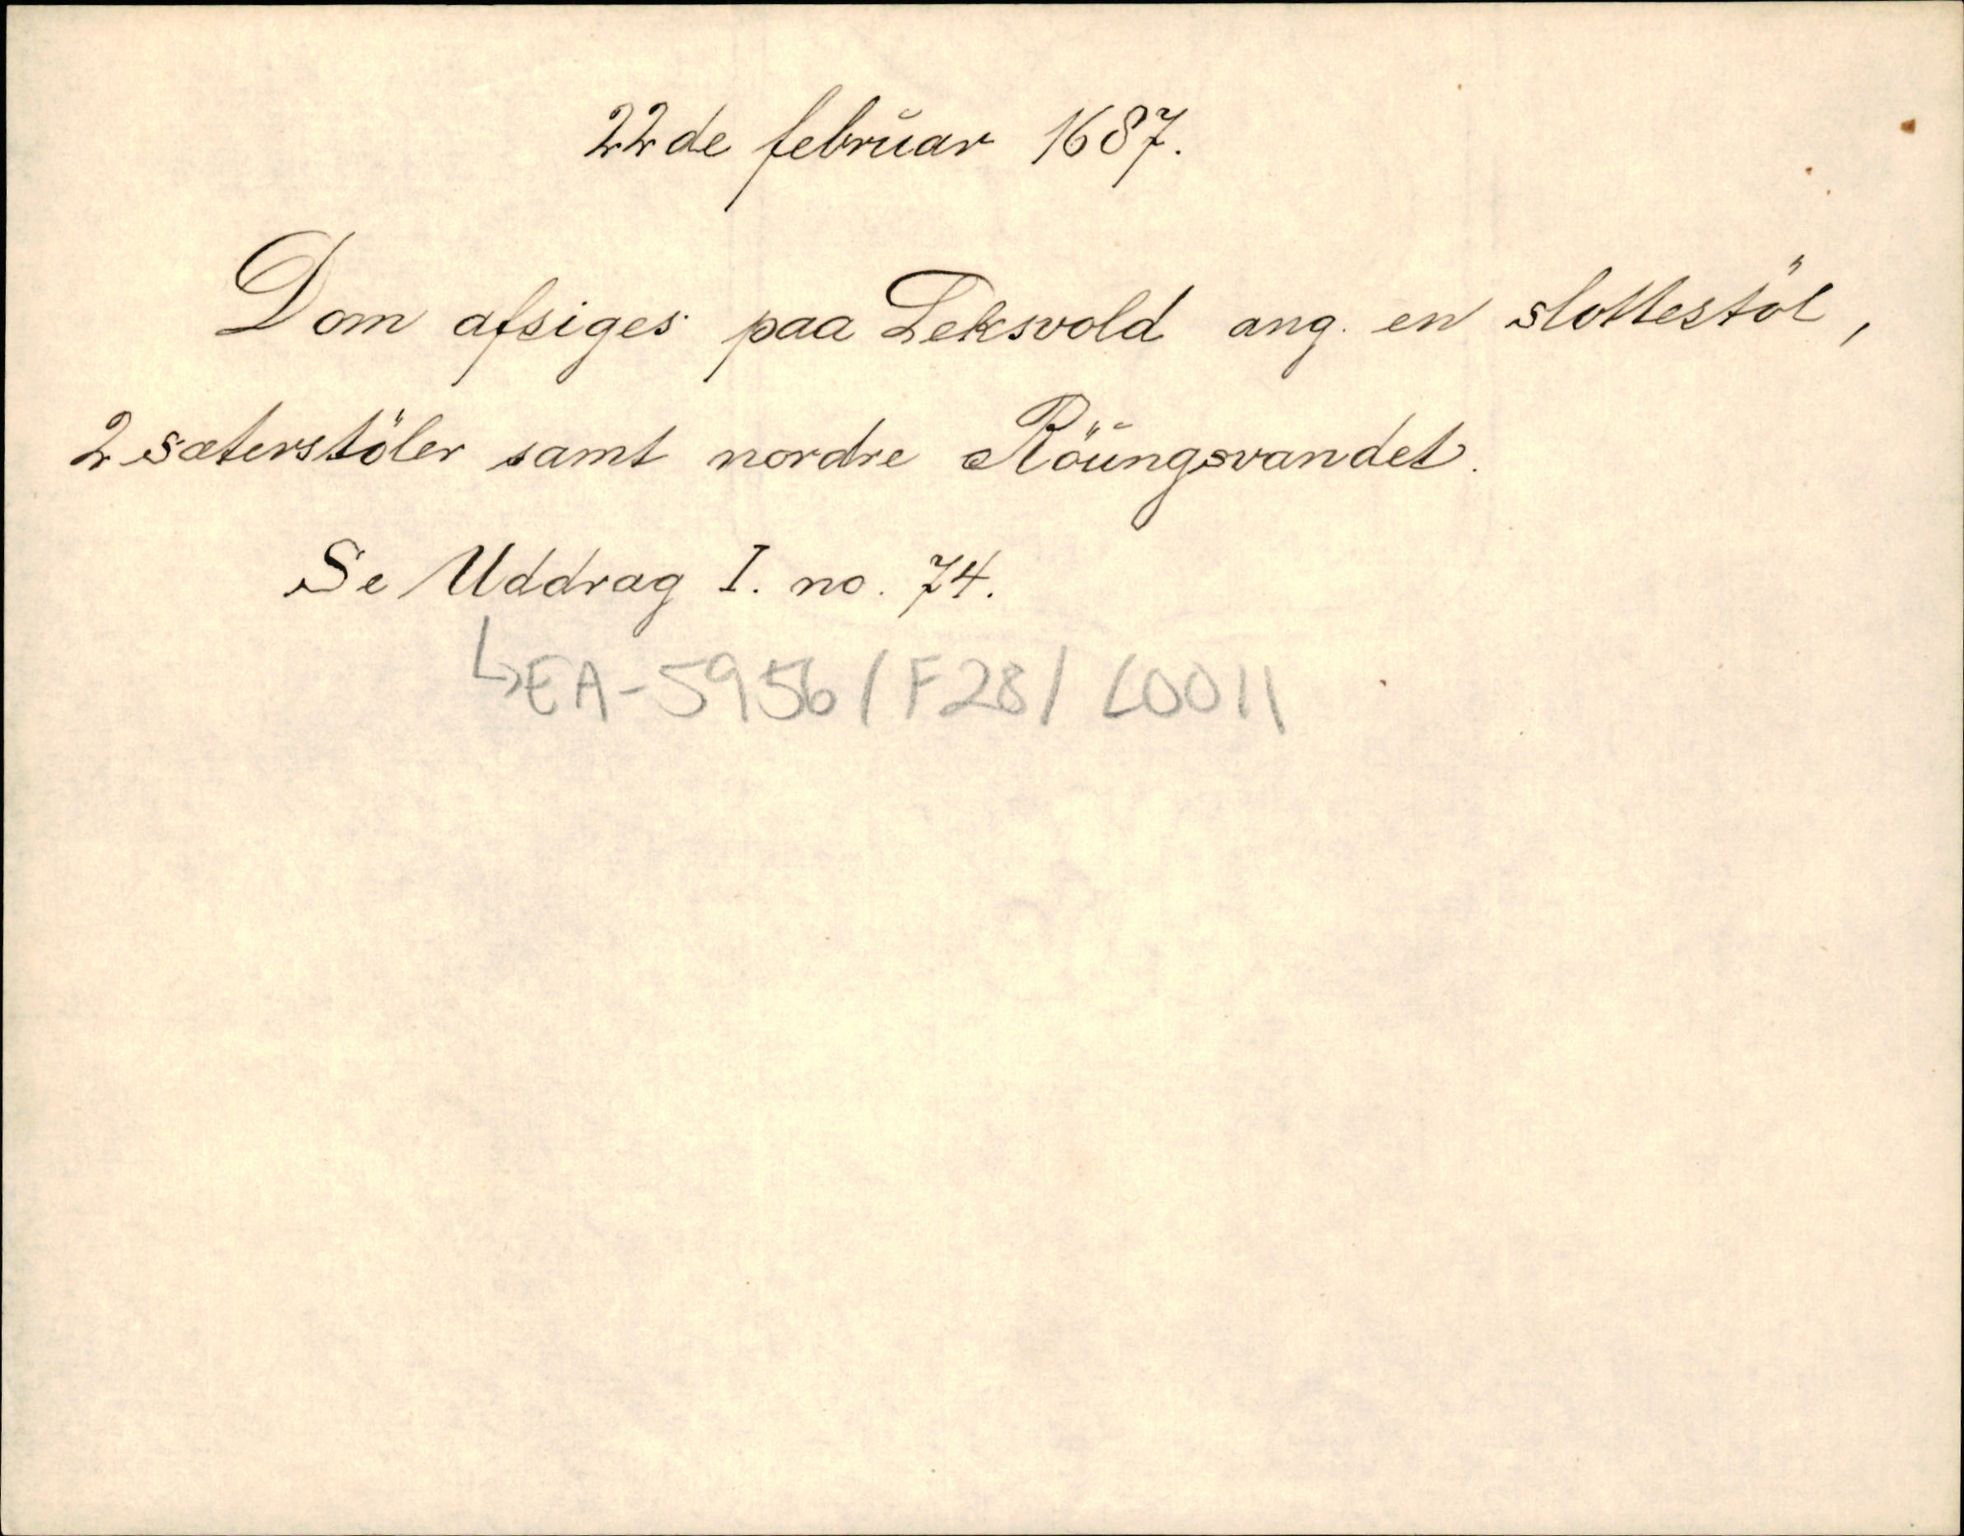 22de februar 1687.
Dom afsiges paa Teksvold ang. en slottestöl,
2 sæterstöler samt nordre Röungsvandet.
Se Uddrag I. no. 74.
↳EA-5956/F28/L0011